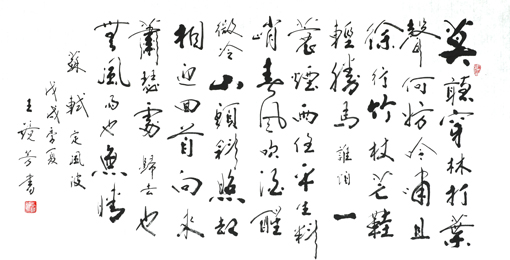 莫聽穿林打葉
聲何妨吟嘯且
徐行竹杖芒鞋
輕勝馬誰怕一
蓑煙雨任平生料
峭春風吹酒醒
微冷山頭斜照却
相迎回首向來
蕭瑟處歸去也
無風雨也無晴
蘇軾定風波
戊戌季夏
王書